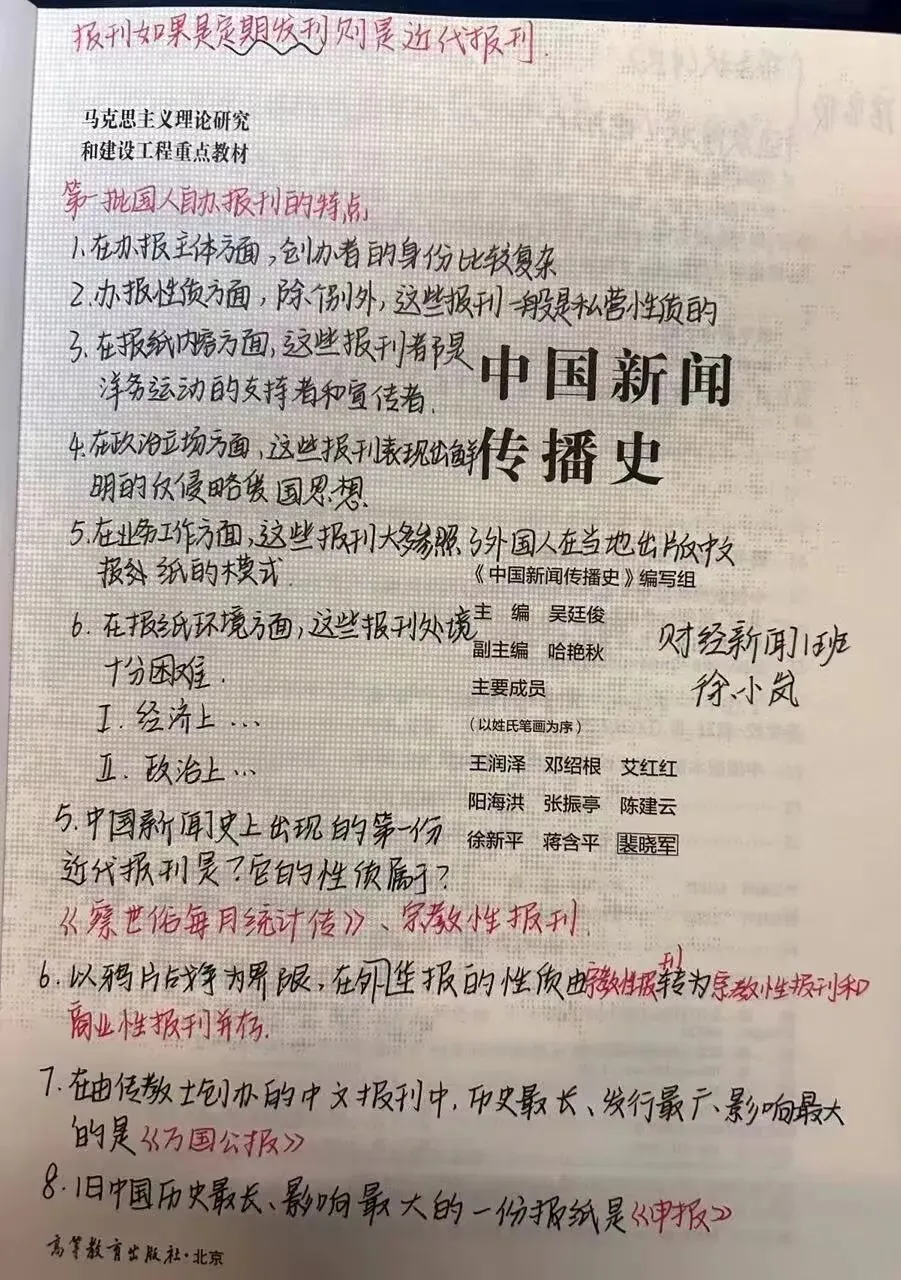 报刊如果是定期发刊则是近代报刊.
马克思主义理论研究
和建设工程重点教材
第一批国人自办报刊的特点
1.在办报主体方面,创办者的身份比较复杂
2.办报性质方面,除个别外,这些报刊一般是私营性质的
3.在报纸内容方面,这些报刊都是
洋务运动的支持者和宣传者.
中国新闻
4.在政治立场方面,这些报刊表现出鲜
明的反侵略爱国思想.
传播史
5.在业务工作方面,这些报刊大多参照了外国人在当地出版中文
报纸的模式.
《中国新闻传播史》编写组
主 编 吴廷俊
副主编 哈艳秋
主要成员
(以姓氏笔画为序)
王润泽 邓绍根 艾红红
阳海洪 张振亭 陈建云
徐新平 蒋含平 裴晓军
财经新闻1班
徐小岚
6.在报纸环境方面,这些报刊处境
十分困难.
Ⅰ.经济上…
Ⅱ.政治上…
5.中国新闻史上出现的第一份
近代报刊是?它的性质属于?
《察世俗每月统计传》、宗教性报刊.
6.以鸦片战争为界限,在华报的性质由宗教性报刊转为宗教性报刊和
商业性报刊并存.
7.在由传教士创办的中文报刊中,历史最长、发行最广、影响最大
的是《万国公报》
8.旧中国历史最长、影响最大的一份报纸是《申报》
高等教育出版社·北京